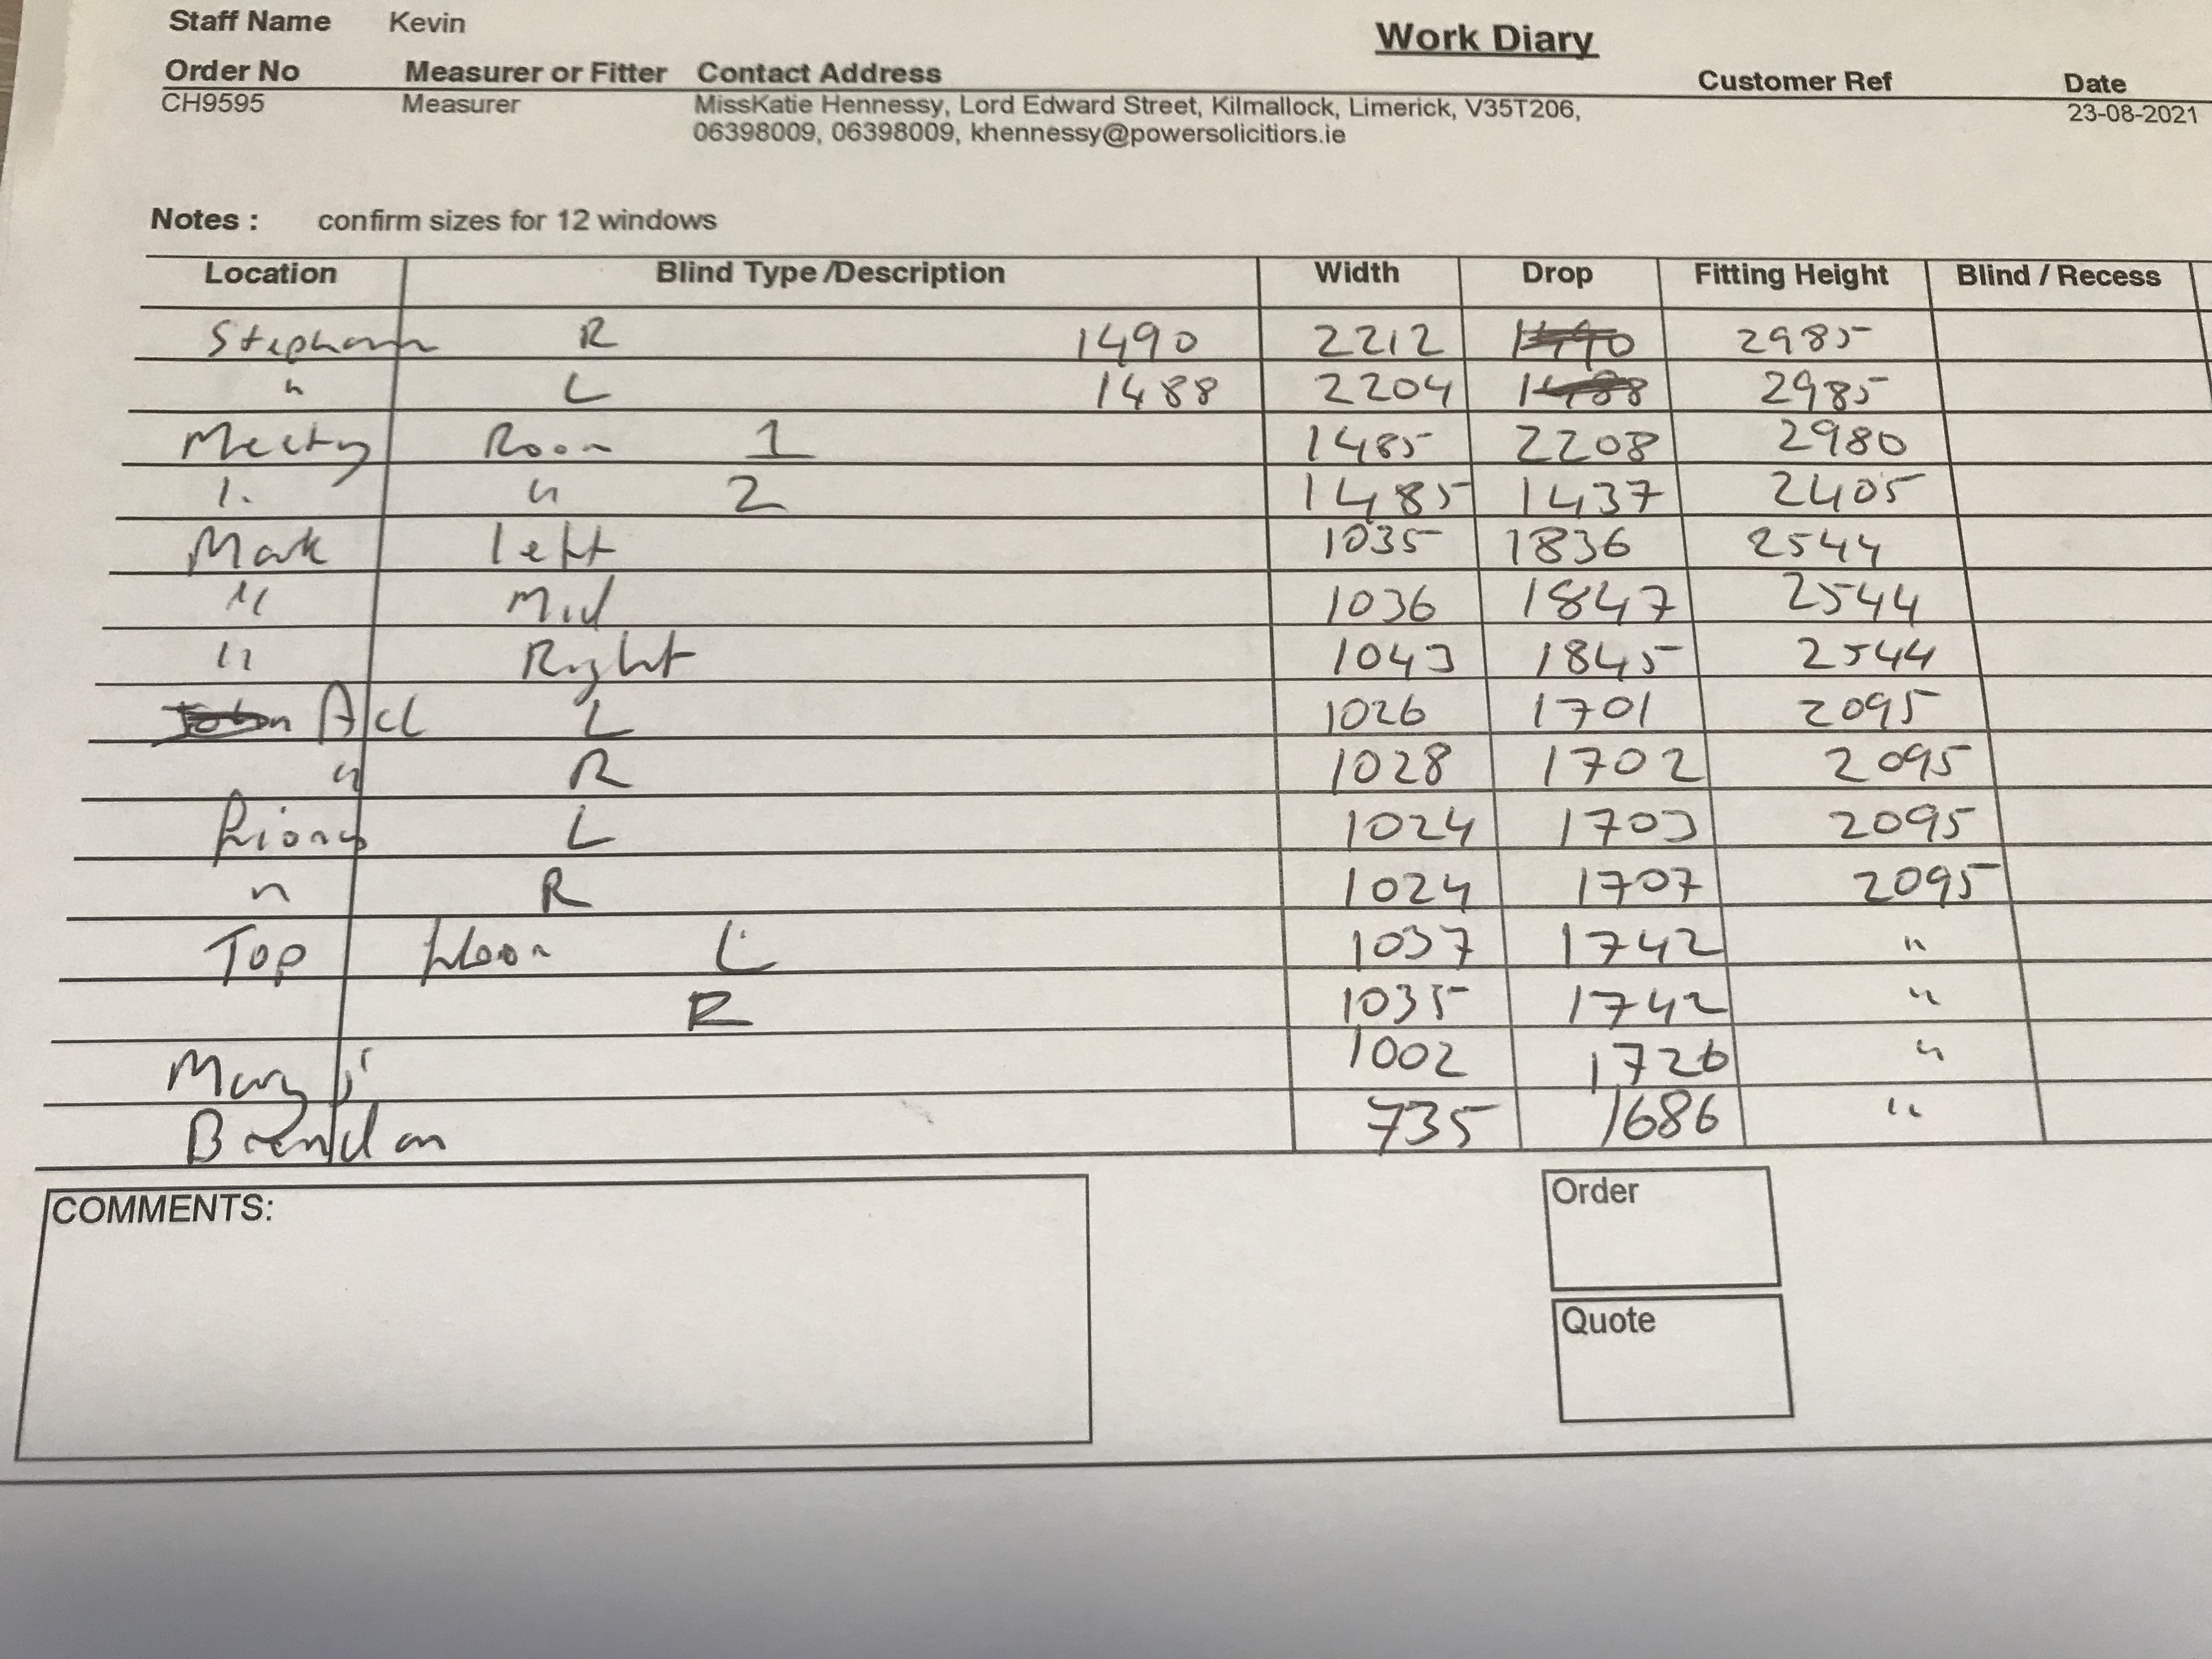 Staff Name Kevin
Work Diary
Order No Measurer or Fitter Contact Address Customer Ref Date
CH9595 Measurer MissKatie Hennessy, Lord Edward Street, Kilmallock, Limerick, V35T206, 23-08-2021
06398009, 06398009, khennessy@powersolicitiors.ie
Notes : confirm sizes for 12 windows
Location Blind Type /Description Width Drop Fitting Height Blind / Recess
R 1490 2212 1490 2985
" L 1488 2204 1488 2985
Room 1 1485 2208 2980
" 2 1485 1437 2405
Mark left 1035 1836 2544
" Mid 1036 1847 2544
" Right 1043 1845 2544
L 1026 1701 2095
" R 1028 1702 2095
L 1024 1703 2095
" R 1024 1707 2095
Top floor L 1037 1742 "
R 1035 1742 "
Mary 1002 1726 "
Brendan 735 1686 "
COMMENTS:
Order
Quote